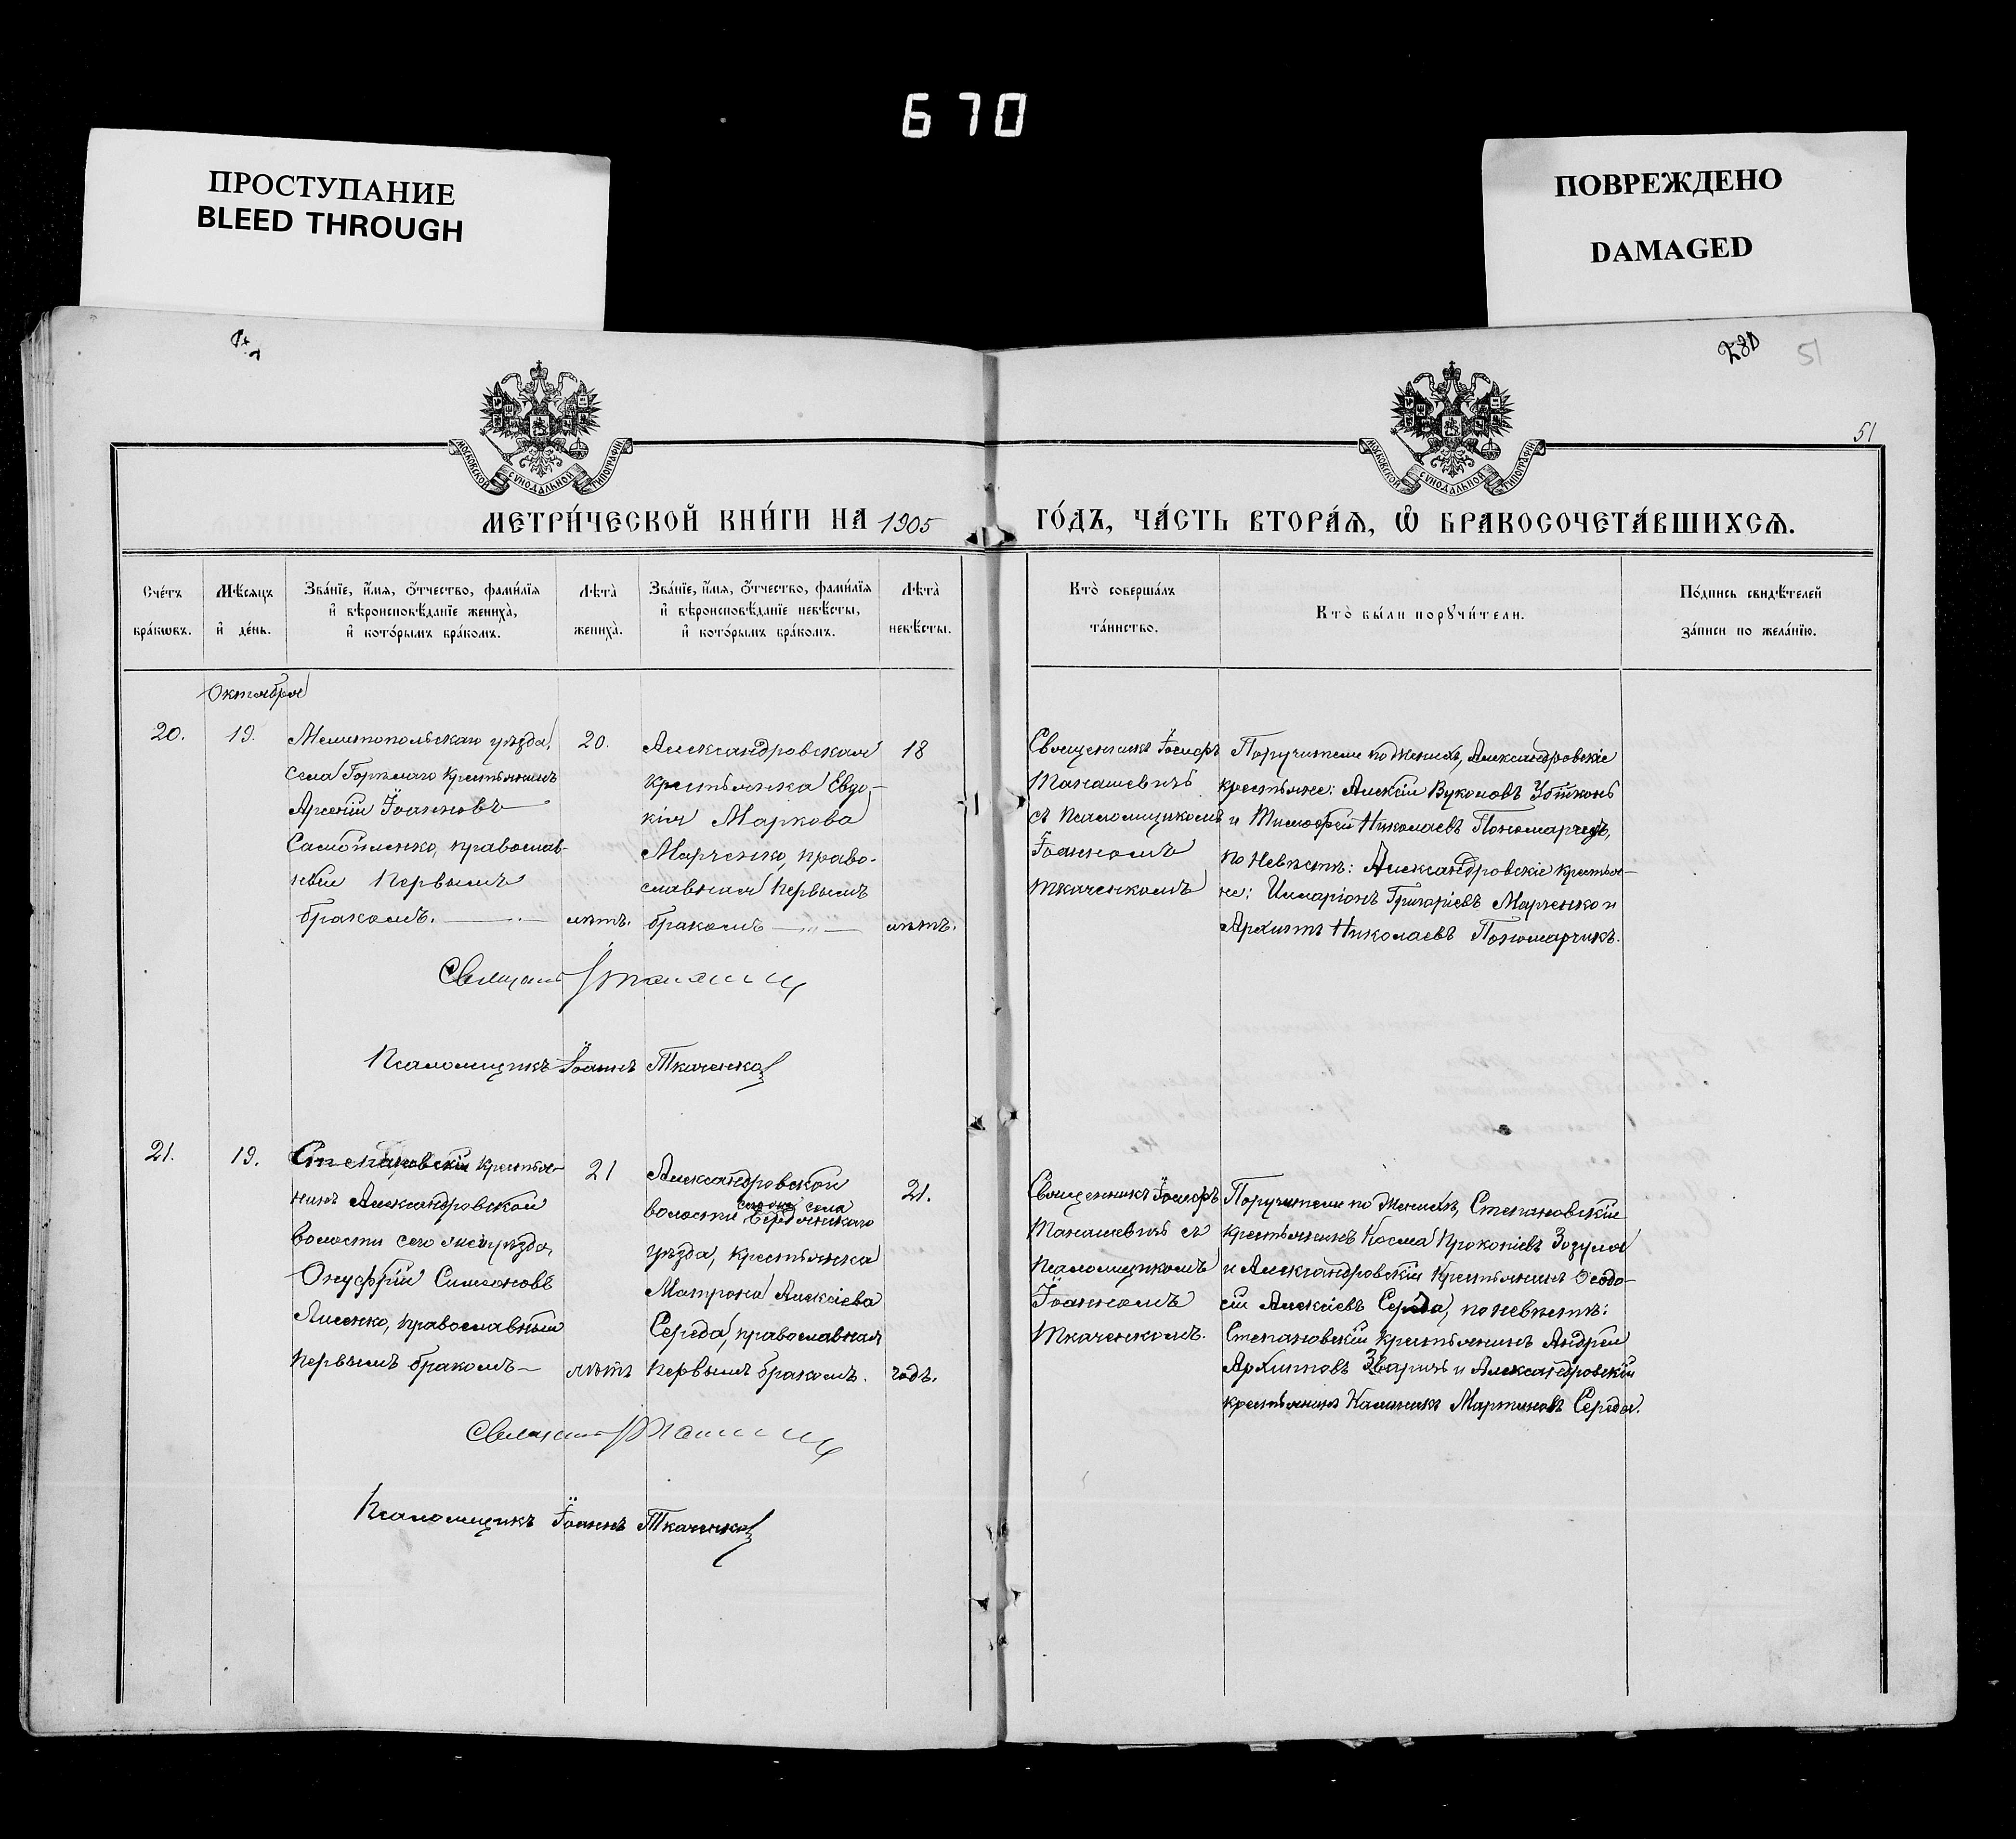 670
ПРОСТУПАНИЕ
BLEED THROUGH
ПОВРЕЖДЕНО
DAMAGED
280
51
51
МОСКОВСКОЙ СУНОДАЛЬНОЙ ТИПОГРАФІИ
МОСКОВСКОЙ СУНОДАЛЬНОЙ ТИПОГРАФІИ
МЕТРИ́ЧЕСКОЙ КНИ́ГИ НА 1905
ГО́ДЪ, ЧА́СТЬ ВТОРА́Ѧ, Ѽ БРАКОСОЧЕТА́ВШИХСѦ.
Сче́тъ
бра́кѡвъ.
Мѣ́сяцъ
и҆ де́нь.
Зва́нїе, и҆́мя, ѻ҆́тчество, фами́лїя
и҆ вѣроисповѣ́данїе жениха̀,
и҆ кото́рымъ бра́комъ.
Лѣта̀
жениха̀.
Зва́нїе, и҆́мя, ѻ҆́тчество, фами́лїя
и҆ вѣроисповѣ́данїе невѣ́сты,
и҆ кото́рымъ бра́комъ.
Лѣта̀
невѣ́сты.
Кто̀ соверша́лъ
та́инство.
Кто̀ бы́ли порꙋчи́тели.
По́дпись свидѣ́телей
за́писи по жела́нїю.
Октября
20.
19.
Мелитопольскаго уѣзда,
села Горѣлаго крестьянинъ
Арсеній Іоанновъ
Самойленко, православ-
ный первымъ
бракомъ.
20.
лѣтъ.
Александровская
крестьянка Евдо-
кія Маркова
Марченко, право-
славная первымъ
бракомъ
18
лѣтъ.
Священникъ Іосифъ
Танашевичъ
съ псаломщикомъ
Іоанномъ
Ткаченкомъ
Поручители по женихѣ, Александровскіе
крестьяне: Алексій Вуколовъ
и Тимофей Николаевъ Пономарчукъ,
по невѣстѣ: Александровскіе крестья-
не: Иларіонъ Григоріевъ Марченко и
Архипъ Николаевъ Пономарчукъ.
Псаломщикъ Іоаннъ Ткаченко
21.
19.
Степановскій крестья-
нинъ Александровской
волости сего же уѣзда,
Онуфрій Симоновъ
Лисенко, православный
первымъ бракомъ
21
лѣтъ
Александровской
волости сего же села
Бердянскаго
уѣзда, крестьянка
Матрона Алексіева
Середа, православная
первымъ бракомъ.
21.
годъ.
Священникъ Іосифъ
Танашевичъ съ
псаломщикомъ
Іоанномъ
Ткаченкомъ.
Поручители по женихѣ, Степановскій
крестьянинъ Косма Прокопіевъ Зозуля
и Александровскій крестьянинъ Ѳеодо-
сій Алексіевъ Середа, по невѣстѣ:
Степановскій крестьянинъ Андрей
Архиповъ Зваричъ и Александровскій
крестьянинъ Калиникъ Мартиновъ Середа.
Псаломщикъ Іоаннъ Ткаченко